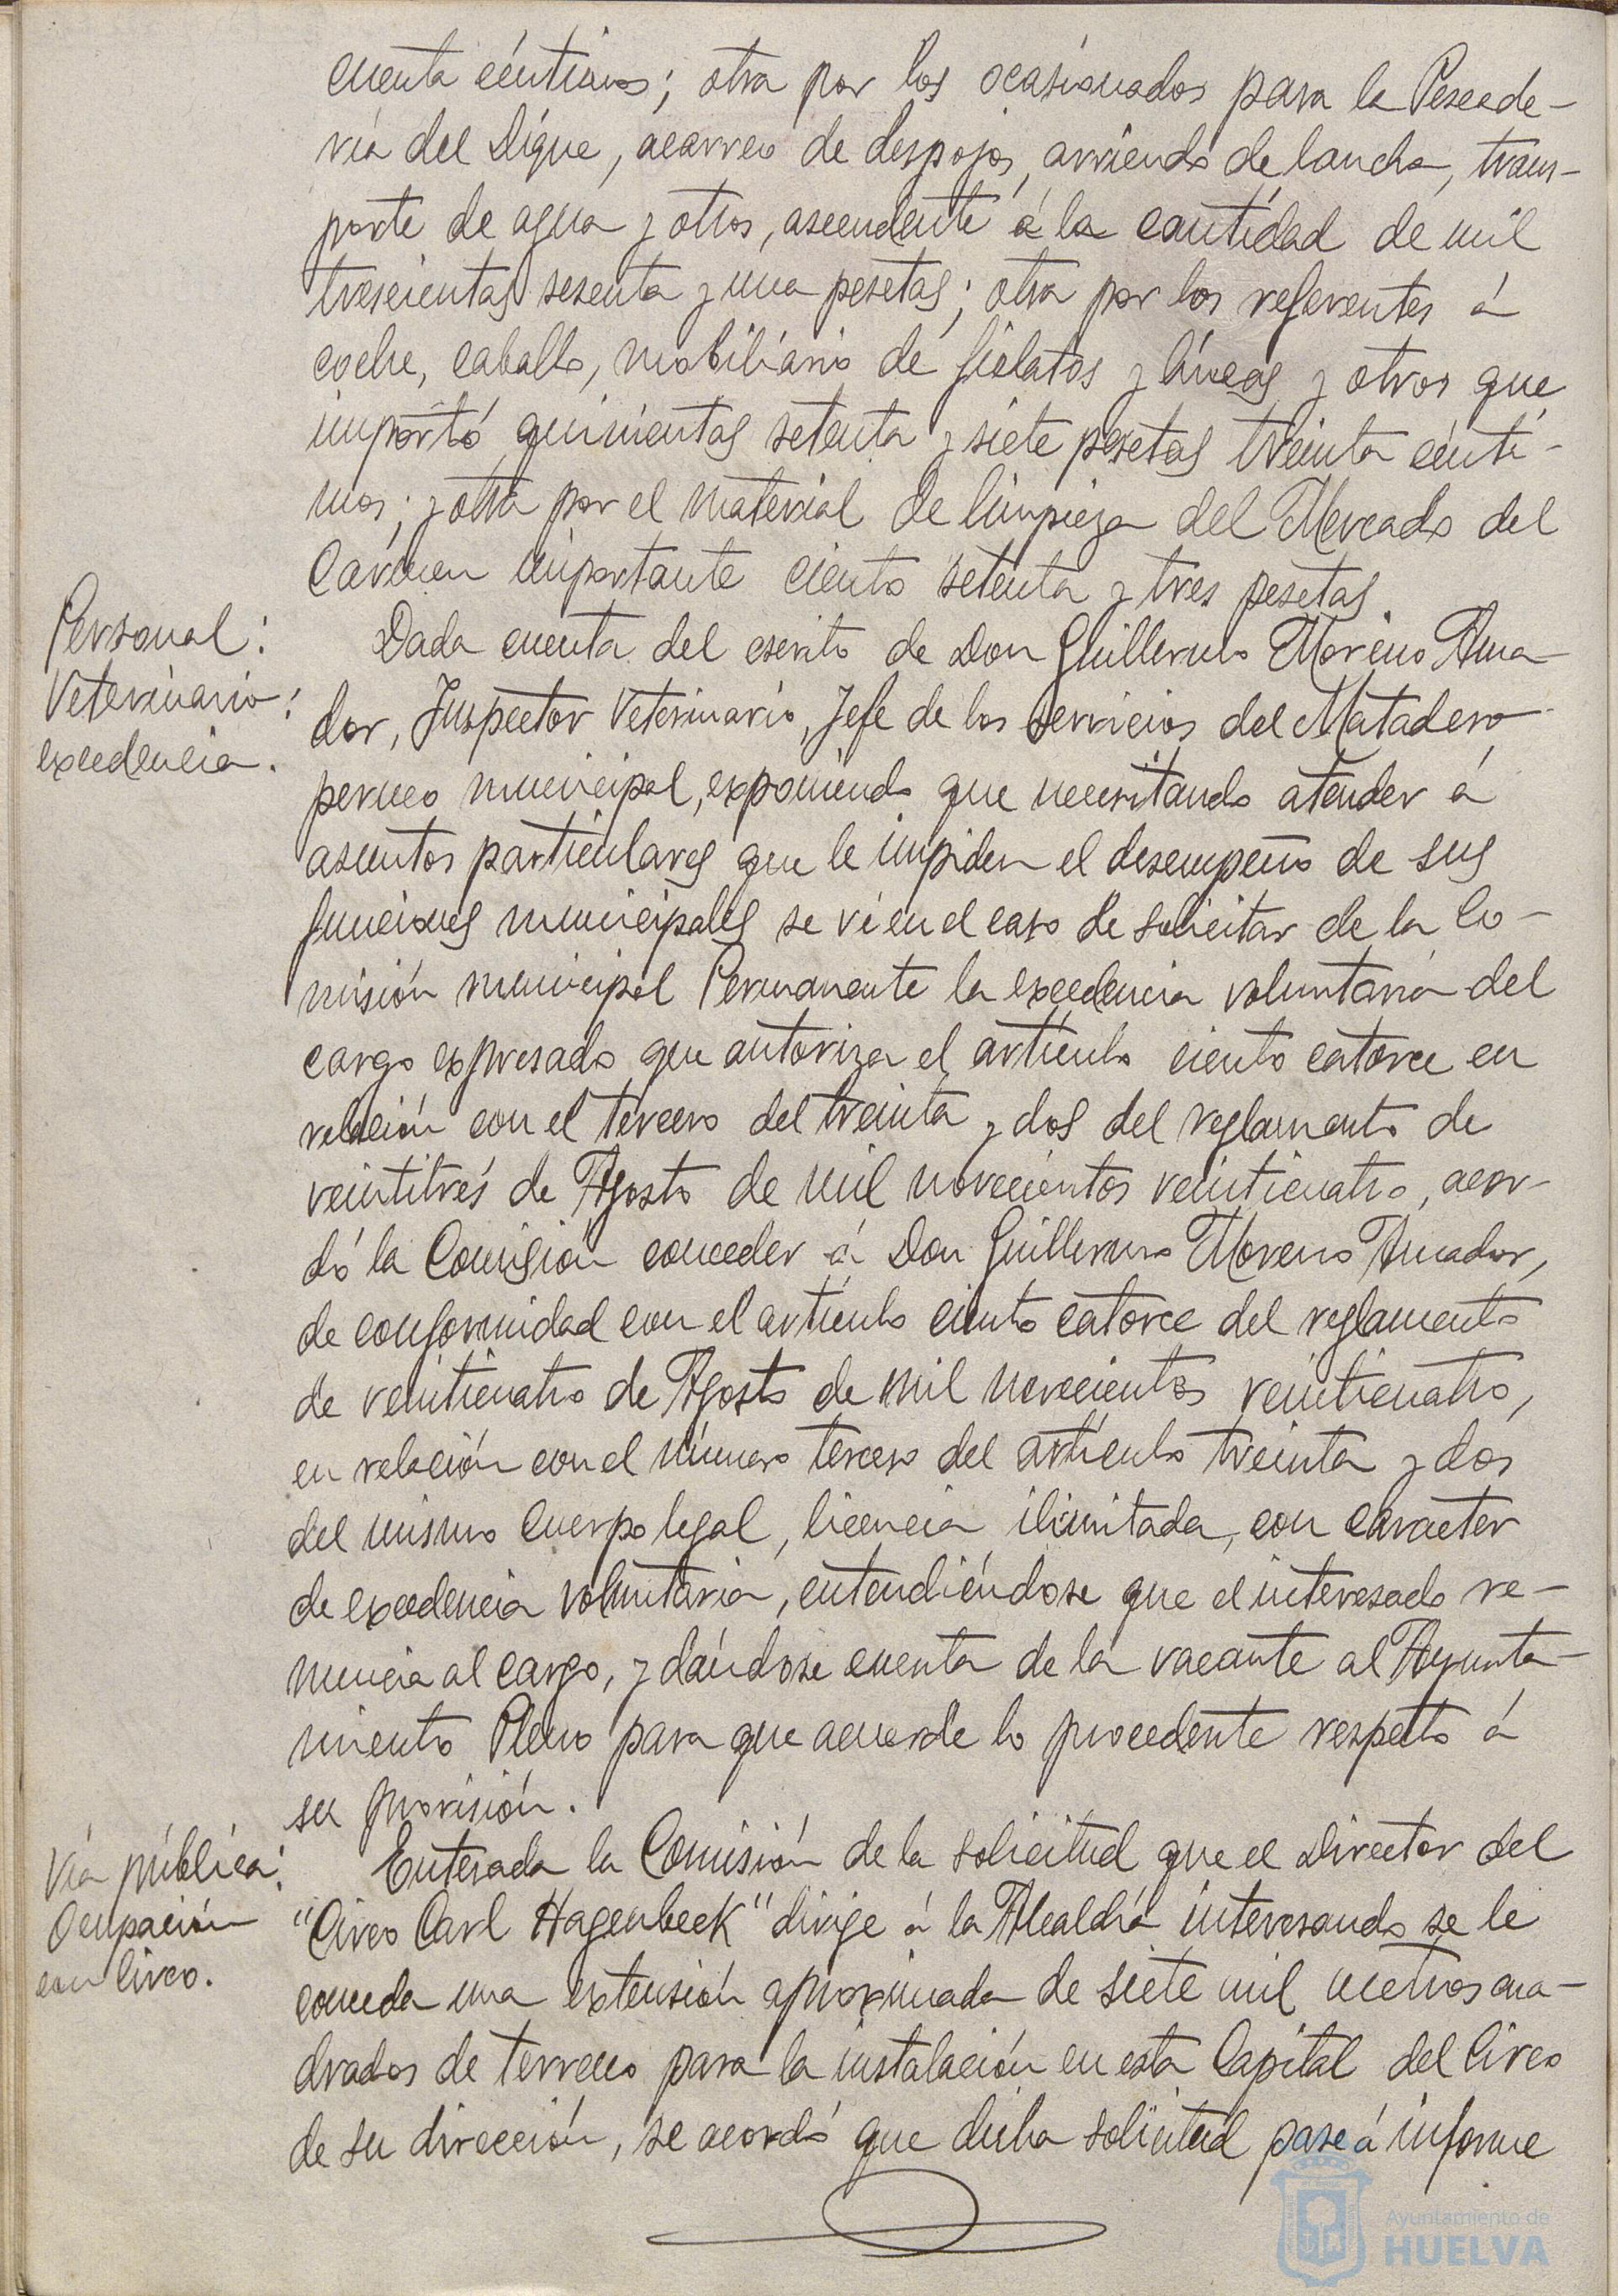 cuenta céntimos; otra por los ocasionados para la Pescade-
ría del Dique, acarreo de despojos, arriendo de lancha, trans-
porte de agua y otros, ascendente á la cantidad de mil
trescientas sesenta y una pesetas; otra por los referentes á
coche, caballo, mobiliario de fielatos y líneas y otros que
importó quinientas setenta y siete pesetas treinta cénti-
mos; y otra por el material de limpieza del Mercado del
Carmen importante ciento setenta y tres pesetas.
Personal:
Veterinario:
excedencia.
Dada cuenta del escrito de Don Guillermo Moreno Ama-
dor, Inspector Veterinario, Jefe de los servicios del Matadero
perneo municipal, exponiendo que necesitando atender á
asuntos particulares que le impiden el desempeño de sus
funciones municipales se vé en el caso de solicitar de la Co-
misión municipal Permanente la excedencia voluntaria del
cargo expresado que autoriza el artículo ciento catorce en
relación con el tercero del treinta y dos del reglamento de
veintitrés de Agosto de mil novecientos veinticuatro, acor-
dó la Comisión conceder á Don Guillermo Moreno Amador,
de conformidad con el artículo ciento catorce del reglamento
de veinticuatro de Agosto de mil novecientos veinticuatro,
en relación con el número tercero del artículo treinta y dos
del mismo Cuerpo legal, licencia ilimitada, con caracter
de excedencia voluntaria, entendiéndose que el interesado re-
nuncia al cargo, y dándose cuenta de la vacante al Ayunta-
miento Pleno para que acuerde lo procedente respecto á
su provisión.
Vía pública:
Ocupación
con Circo.
Enterada la Comisión de la solicitud que el Director del
"Circo Carl Hagenbeck" dirige á la Alcaldía interesando se le
conceda una extensión aproximada de siete mil metros cua-
drados de terreno para la instalación en esta Capital del Circo
de su dirección, se acordó que dicha solicitud pase á informe
Ayuntamiento de
HUELVA